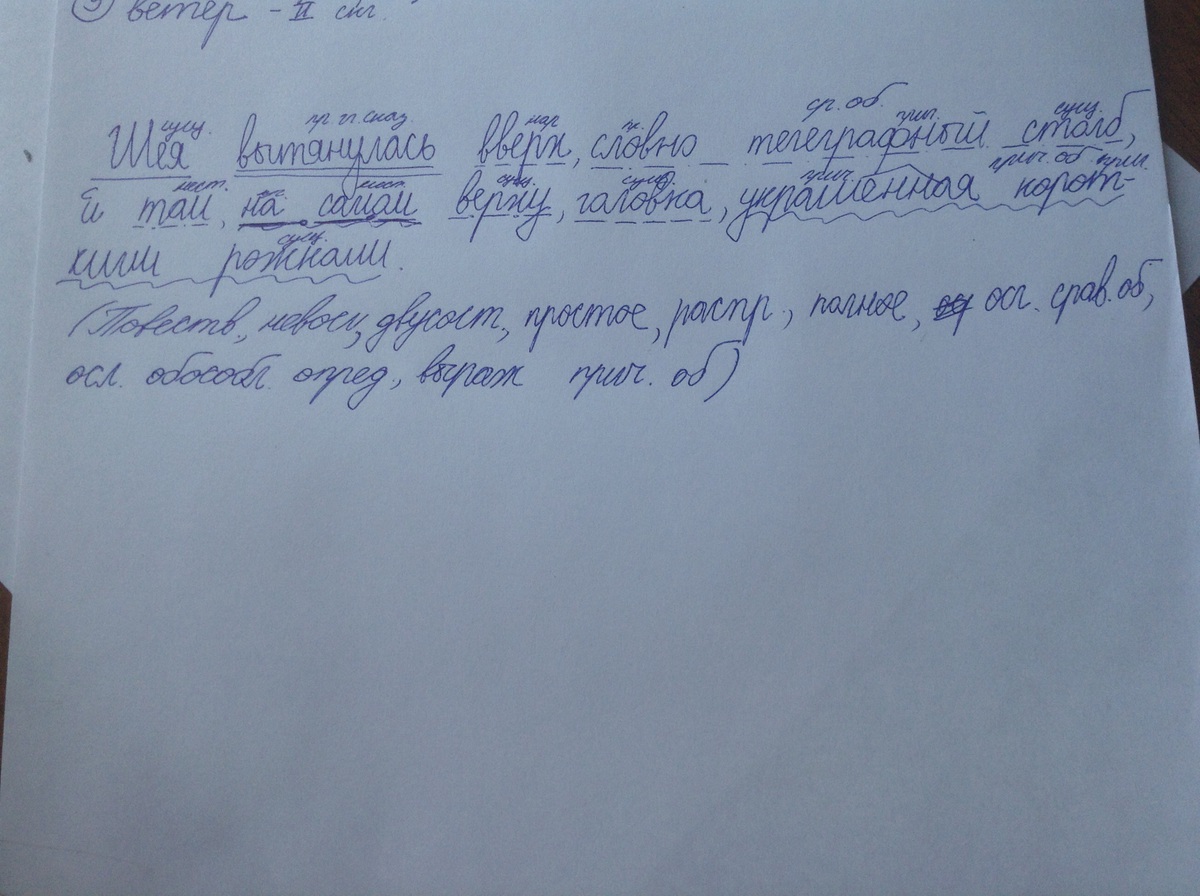 ③ ветер - II скл.
ср. об.
сущ. пр. гл. сказ. нар. прил. сущ.
Шея вытянулась вверх, словно телеграфный столб,
мест. сущ. сущ. прич. прич. об прил.
И там, на самом верху, головка, украшенная корот-
сущ.
кими рожками.
(Повеств, невоск, двусост, простое, распр., полное, осл. срав. об,
осл. обособл. опред., выраж прич. об)